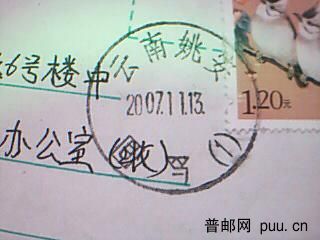 南姚家
6号楼中公
2007.11.13.
1.20元
办公室(收)
(1)
普邮网 puu.cn